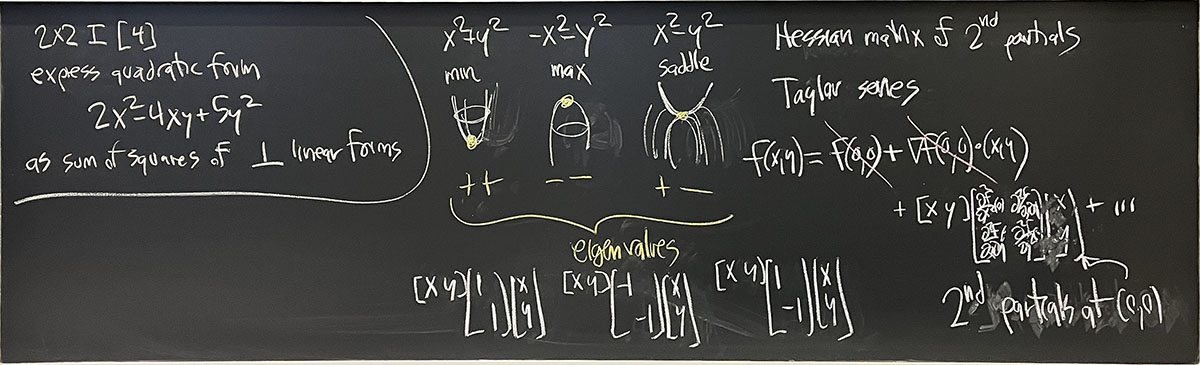 2x2 I [4]
express quadratic form
2x²-4xy+5y²
as sum of squares of ⊥ linear forms
x²+y² -x²-y² x²-y²
min max saddle
++ -- +-
eigenvalues
[x y][1 1][x y] [x y][-1 -1][x y] [x y][1 -1][x y]
Hessian matrix of 2nd partials
Taylor series
f(x,y) = f(0,0) + ∇f(0,0)·(x,y)
+ [x y] [x y] + ...
2nd partials at (0,0)